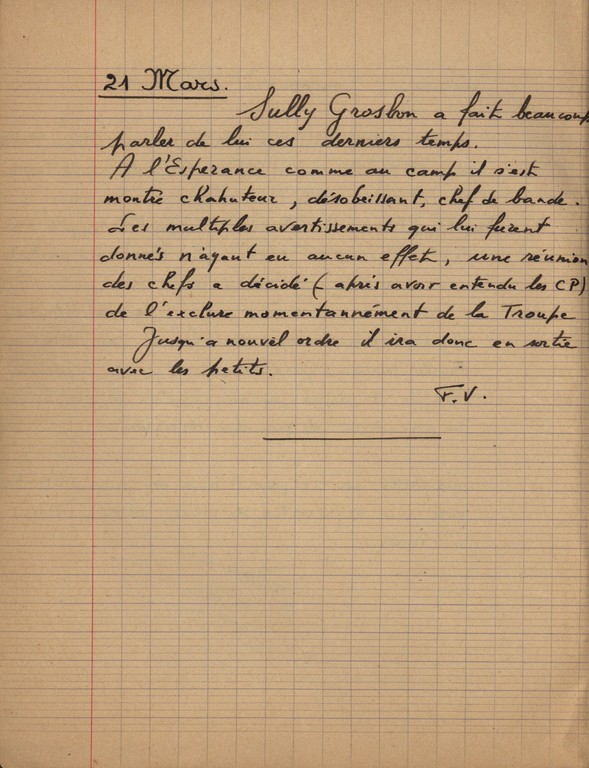 21 Mars.
Sully Grosbon a fait beaucoup
parler de lui ces derniers temps.
A l'Esperance comme au camp il s'est
montré chahuteur, désobeissant, chef de bande.
Les multiples avertissements qui lui furent
donnés n'ayant eu aucun effet, une réunion
des chefs a décidé (après avoir entendu les CP)
de l'exclure momentannément de la Troupe
Jusqu'a nouvel ordre il ira donc en sortie
avec les petits.
F.V.